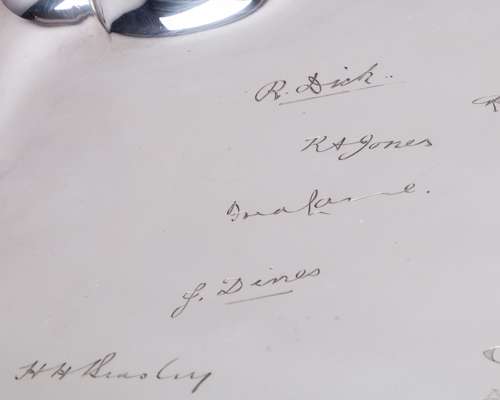 R. Dick
K A Jones
J. Dines
H H Beasley